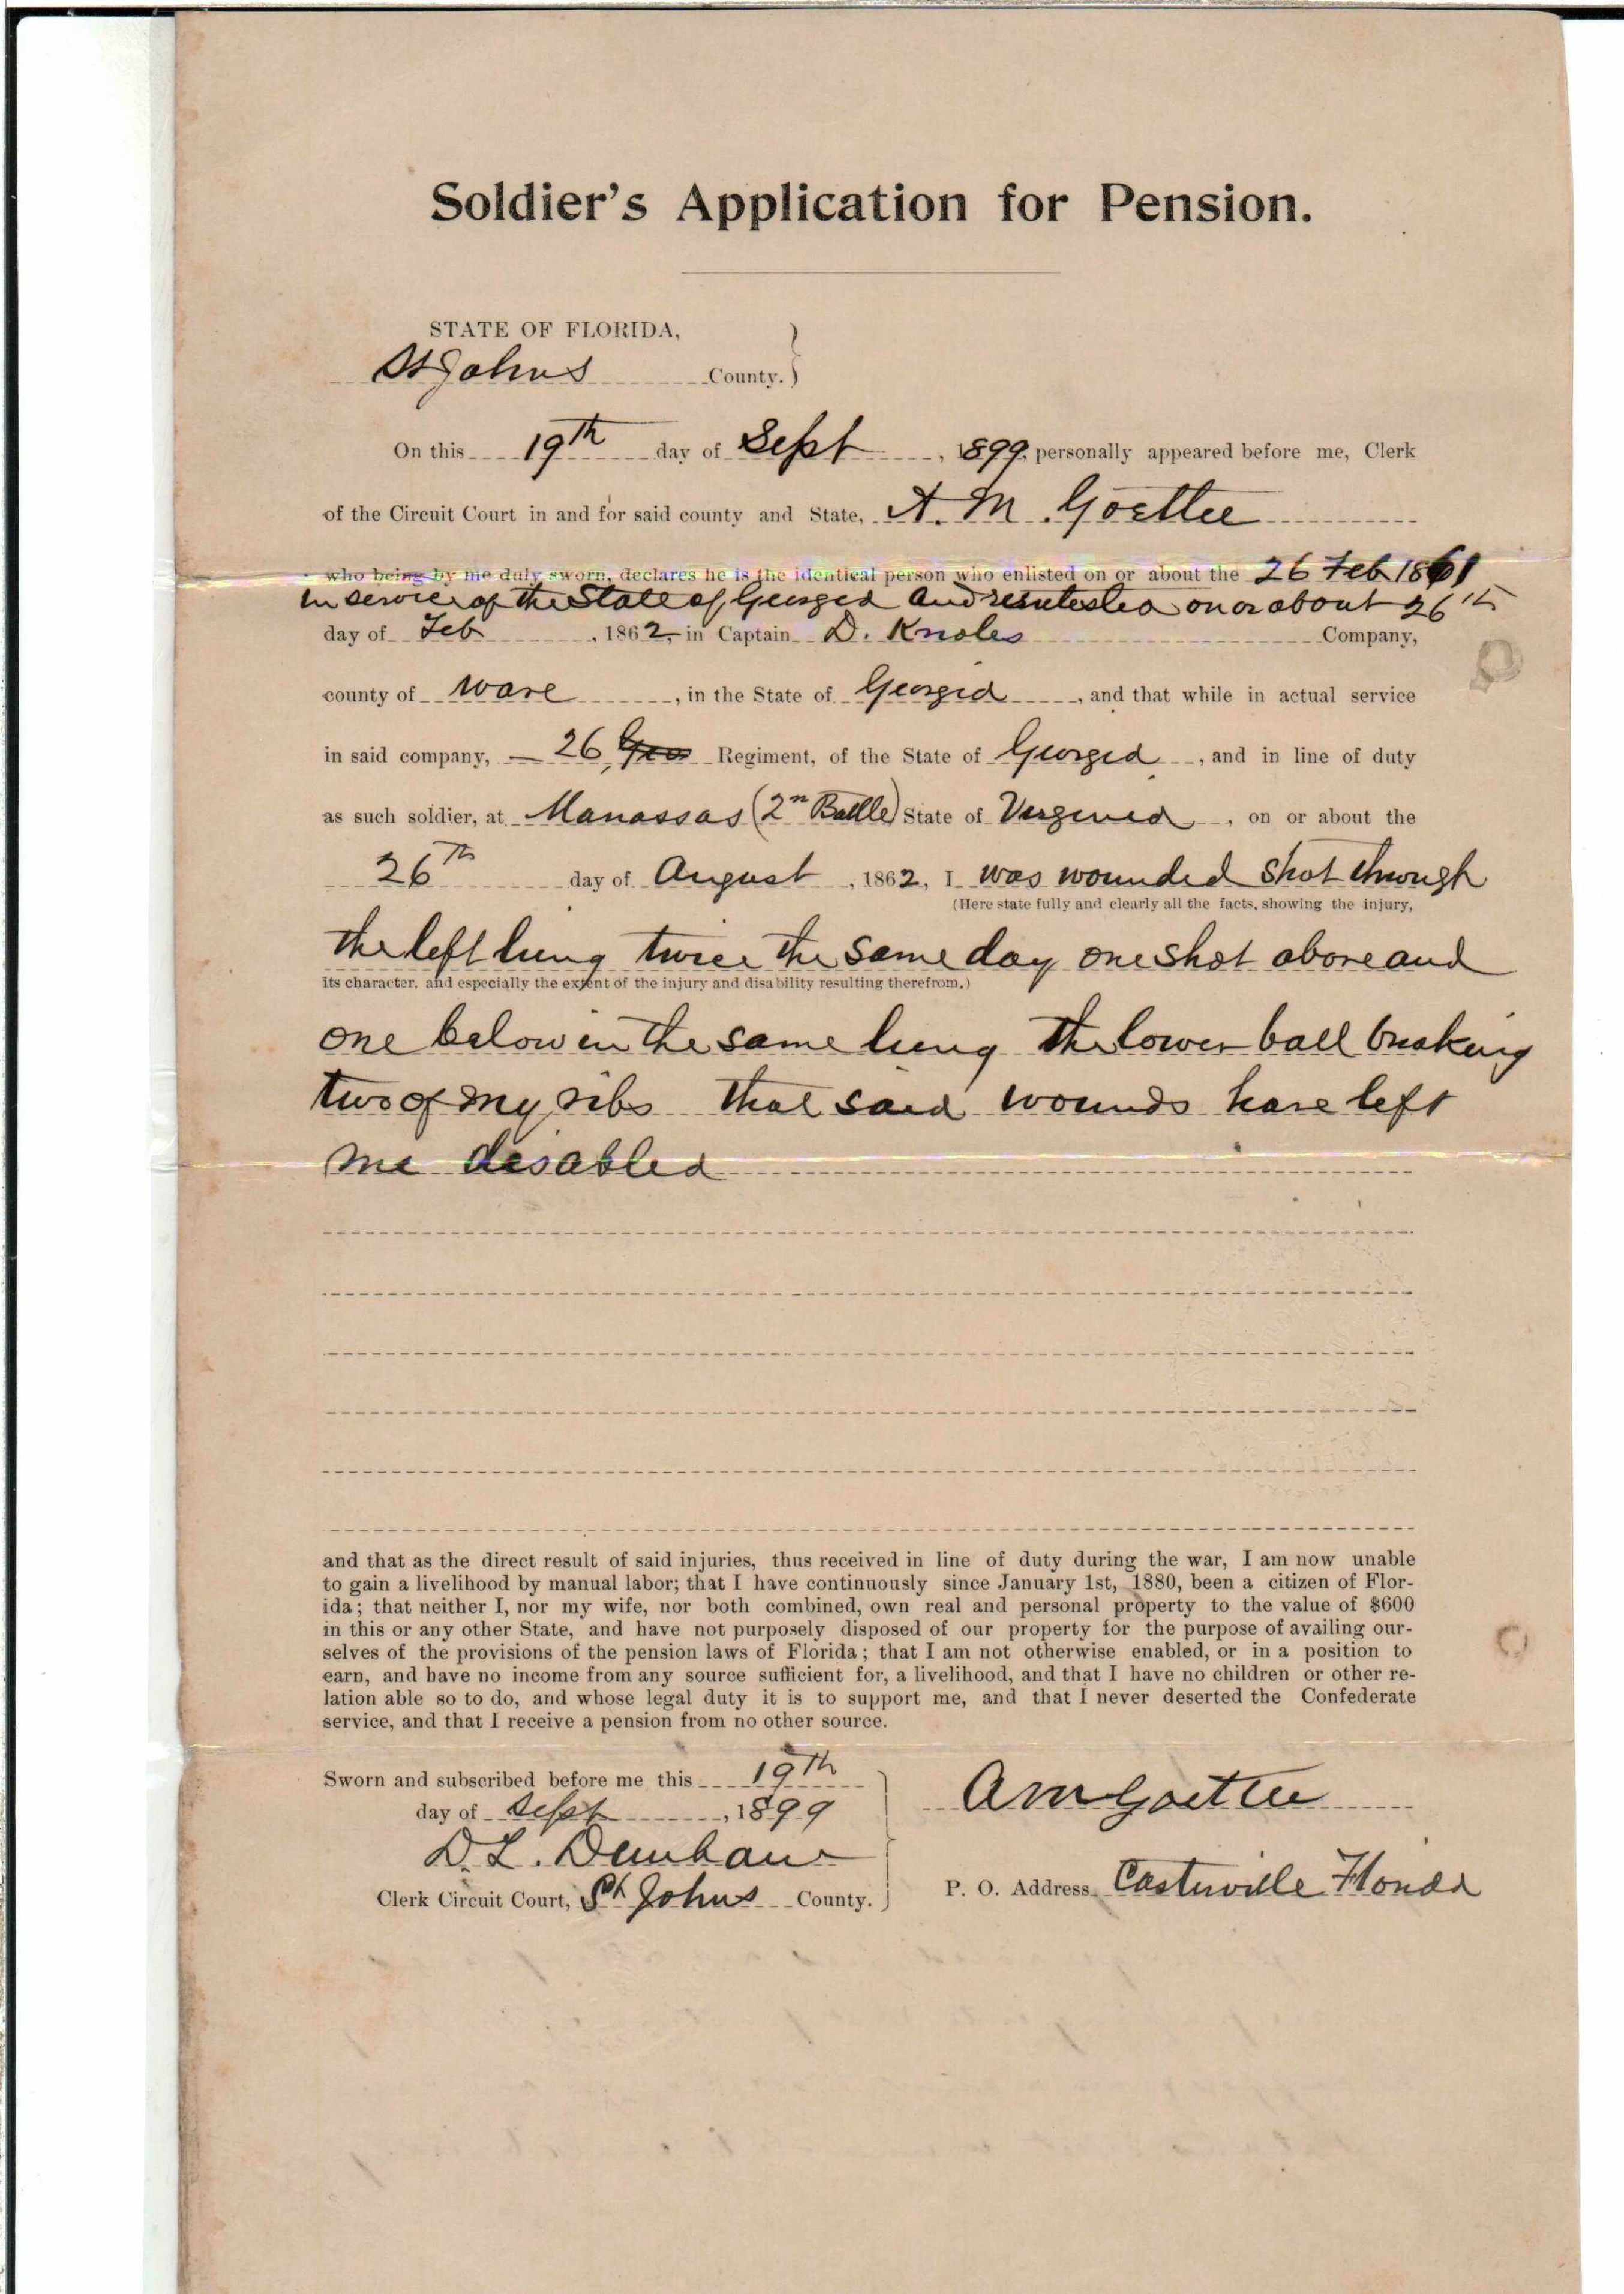 Soldier's Application for Pension.
STATE OF FLORIDA,
St Johns County.
On this 19th day of Sept, 1899, personally appeared before me, Clerk
of the Circuit Court in and for said county and State, A. M. Goettee
who being by me duly sworn, declares he is the identical person who enlisted on or about the 26 Feb 1861
in service of the State of Georgia and reenlisted on or about 26th
day of Feb, 1862, in Captain D. Knoles Company,
county of Ware, in the State of Georgia, and that while in actual service
in said company, — 26 Geo Regiment, of the State of Georgia, and in line of duty
as such soldier, at Manassas (2n Battle) State of Virginia, on or about the
26th day of August, 1862, I was wounded shot through
(Here state fully and clearly all the facts, showing the injury,
the left lung twice the same day one shot above and
its character, and especially the extent of the injury and disability resulting therefrom.)
one below in the same lung the lower ball breaking
two of my ribs that said wounds have left
me disabled
and that as the direct result of said injuries, thus received in line of duty during the war, I am now unable
to gain a livelihood by manual labor; that I have continuously since January 1st, 1880, been a citizen of Flor-
ida; that neither I, nor my wife, nor both combined, own real and personal property to the value of $600
in this or any other State, and have not purposely disposed of our property for the purpose of availing our-
selves of the provisions of the pension laws of Florida; that I am not otherwise enabled, or in a position to
earn, and have no income from any source sufficient for, a livelihood, and that I have no children or other re-
lation able so to do, and whose legal duty it is to support me, and that I never deserted the Confederate
service, and that I receive a pension from no other source.
Sworn and subscribed before me this 19th
day of Sept, 1899
A M Goettee
D. L. Dunham
Clerk Circuit Court, St Johns County.
P. O. Address Casterville Florida